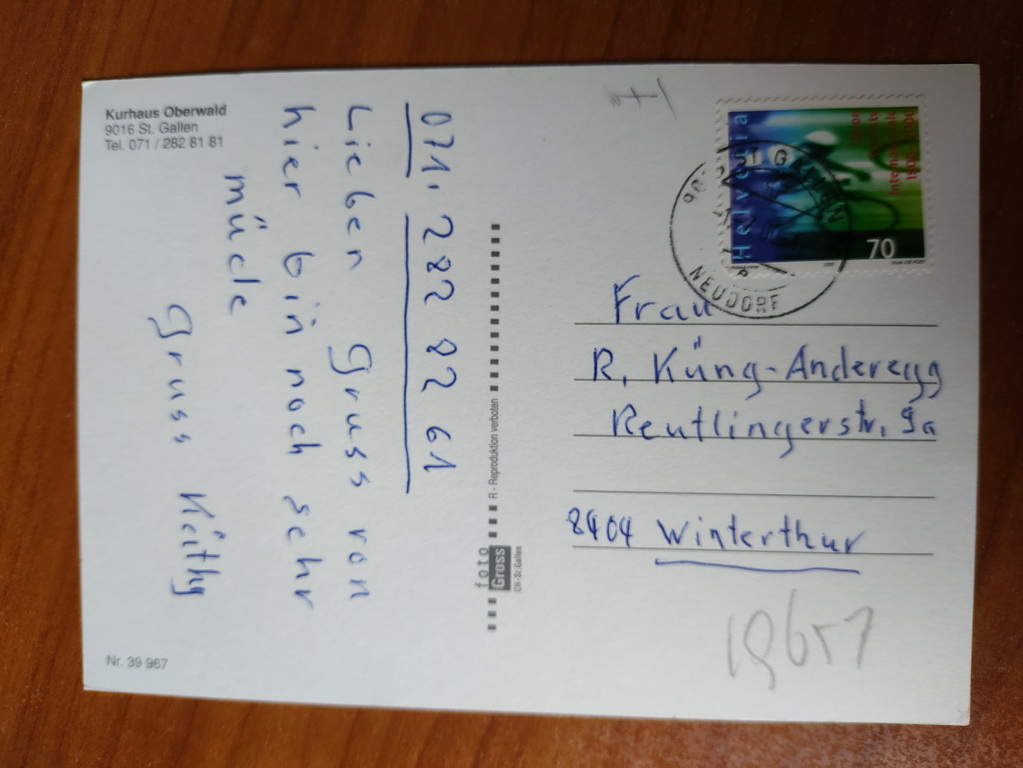 Kurhaus Oberwald
9016 St. Gallen
Tel. 071 / 282 81 81
071. 282 82 61
Lieben Gruss von
hier bin noch sehr
müde
Gruss Käthy
Nr. 39 967
R - Reproduktion verboten
foto
Gross
CH-St. Gallen
Helvetia
Union
Cycliste
Internationale
1900-2000
70
ST. GALLEN
NEUDORF
Frau
R. Küng-Anderegg
Reutlingerstr. 9a
8404 Winterthur
19651